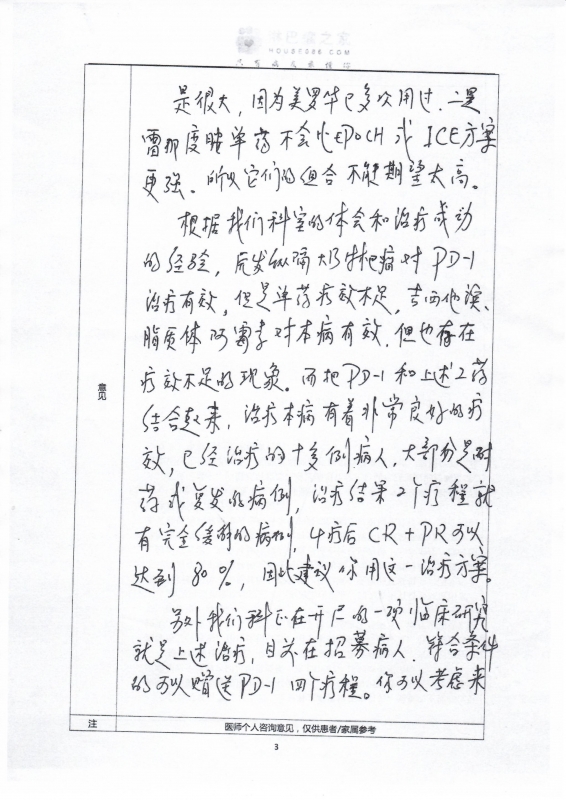 淋巴瘤之家
HOUSE086.COM
是很大，因为美罗华已多次用过，二是
雷那度胺单药不会比EPOCH或ICE方案
更强。所以它们的组合不能期望太高。
根据我们科室的体会和治疗成功
的经验，原发纵隔大B细胞瘤对PD-1
治疗有效，但是单药疗效不足，吉西他滨、
脂质体阿霉素对本病有效，但也存在
疗效不足的现象。而把PD-1和上述2药
结合起来，治疗本病有着非常良好的疗
效，已经治疗的十多例病人，大部分是耐
药或复发的病例，治疗结果2个疗程就
有完全缓解的病例，4疗后CR+PR可以
达到80%，因此建议你用这一治疗方案。
另外我们科正在开展的一项临床研究
就是上述治疗，目前在招募病人，符合条件
的可以赠送PD-1四个疗程。你可以考虑来
意见
注
医师个人咨询意见，仅供患者/家属参考
3